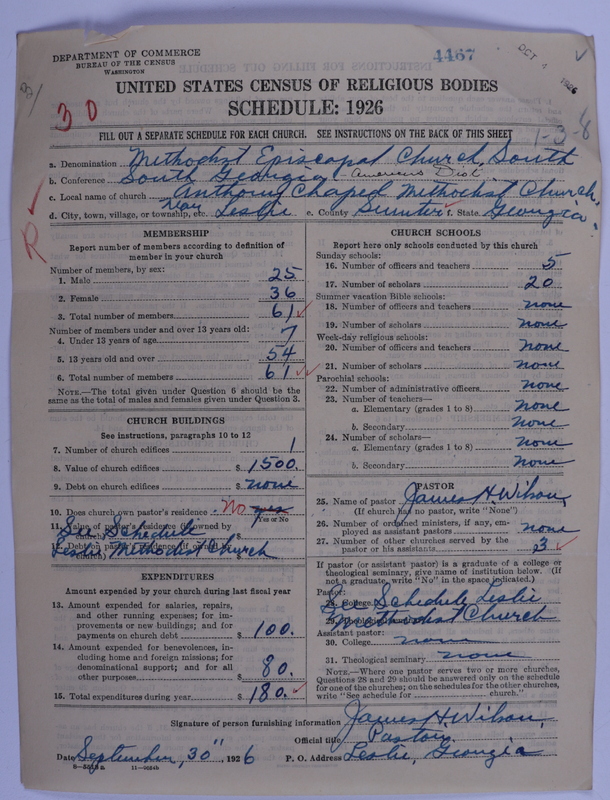 DEPARTMENT OF COMMERCE
BUREAU OF THE CENSUS
WASHINGTON
4467
OCT 4 1926
30
UNITED STATES CENSUS OF RELIGIOUS BODIES
SCHEDULE: 1926
FILL OUT A SEPARATE SCHEDULE FOR EACH CHURCH. SEE INSTRUCTIONS ON THE BACK OF THIS SHEET
1-3-8
a. Denomination Methodist Episcopal Church, South
b. Conference South Georgia Americus Dist.
c. Local name of church Anthony Chapel Methodist Church.
d. City, town, village, or township, etc. Near Leslie e. County Sumter f. State Georgia.
R
MEMBERSHIP
Report number of members according to definition of
member in your church
Number of members, by sex:
1. Male 25
2. Female 36
3. Total number of members 61
Number of members under and over 13 years old:
4. Under 13 years of age 7
5. 13 years old and over 54
6. Total number of members 61
NOTE.—The total given under Question 6 should be the
same as the total of males and females given under Question 3.
CHURCH BUILDINGS
See instructions, paragraphs 10 to 12
7. Number of church edifices 1
8. Value of church edifices $ 1500.
9. Debt on church edifices $ none
10. Does church own pastor's residence No yes
Yes or No
11. Value of pastor's residence (if owned by
church)
See Schedule
12. Debt on pastor's residence (if owned by
church)
Leslie Methodist Church
EXPENDITURES
Amount expended by your church during last fiscal year
13. Amount expended for salaries, repairs,
and other running expenses; for im-
provements or new buildings; and for
payments on church debt $ 100.
14. Amount expended for benevolences, in-
cluding home and foreign missions; for
denominational support; and for all
other purposes $ 80.
15. Total expenditures during year $ 180.
CHURCH SCHOOLS
Report here only schools conducted by this church
Sunday schools:
16. Number of officers and teachers 5
17. Number of scholars 20
Summer vacation Bible schools:
18. Number of officers and teachers none
19. Number of scholars none
Week-day religious schools:
20. Number of officers and teachers none
21. Number of scholars none
Parochial schools:
22. Number of administrative officers none
23. Number of teachers—
a. Elementary (grades 1 to 8) none
b. Secondary none
24. Number of scholars—
a. Elementary (grades 1 to 8) none
b. Secondary none
PASTOR
25. Name of pastor James H. Wilson,
(If church has no pastor, write "None")
26. Number of ordained ministers, if any, em-
ployed as assistant pastors none
27. Number of other churches served by the
pastor or his assistants 3
If pastor (or assistant pastor) is a graduate of a college or
theological seminary, give name of institution below. (If
not a graduate, write "No" in the space indicated.)
Pastor:
28. College See Schedule, Leslie
29. Theological seminary Methodist Church
Assistant pastor:
30. College none
31. Theological seminary none
NOTE.—Where one pastor serves two or more churches,
Questions 28 and 29 should be answered only on the schedule
for one of the churches; on the schedules for the other churches,
write "See schedule for church."
Signature of person furnishing information James H. Wilson,
Official title Pastor,
Date September, 30", 1926 P. O. Address Leslie, Georgia
11—9554b